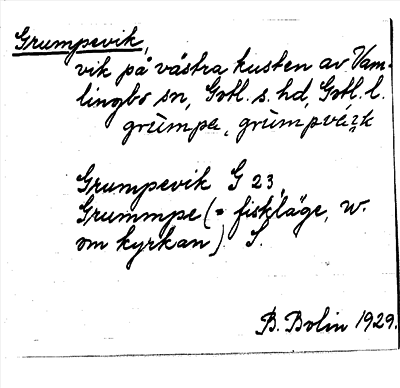 Grumpevik,
vik på västra kusten av Vam-
lingbo sn, Gotl. s. hd, Gotl. l.
grùmpe, grùmpvéik
Grumpevik G 23
Grummpe (= fiskläge, W.
om kyrkan) S.
B. Bolin 1929.